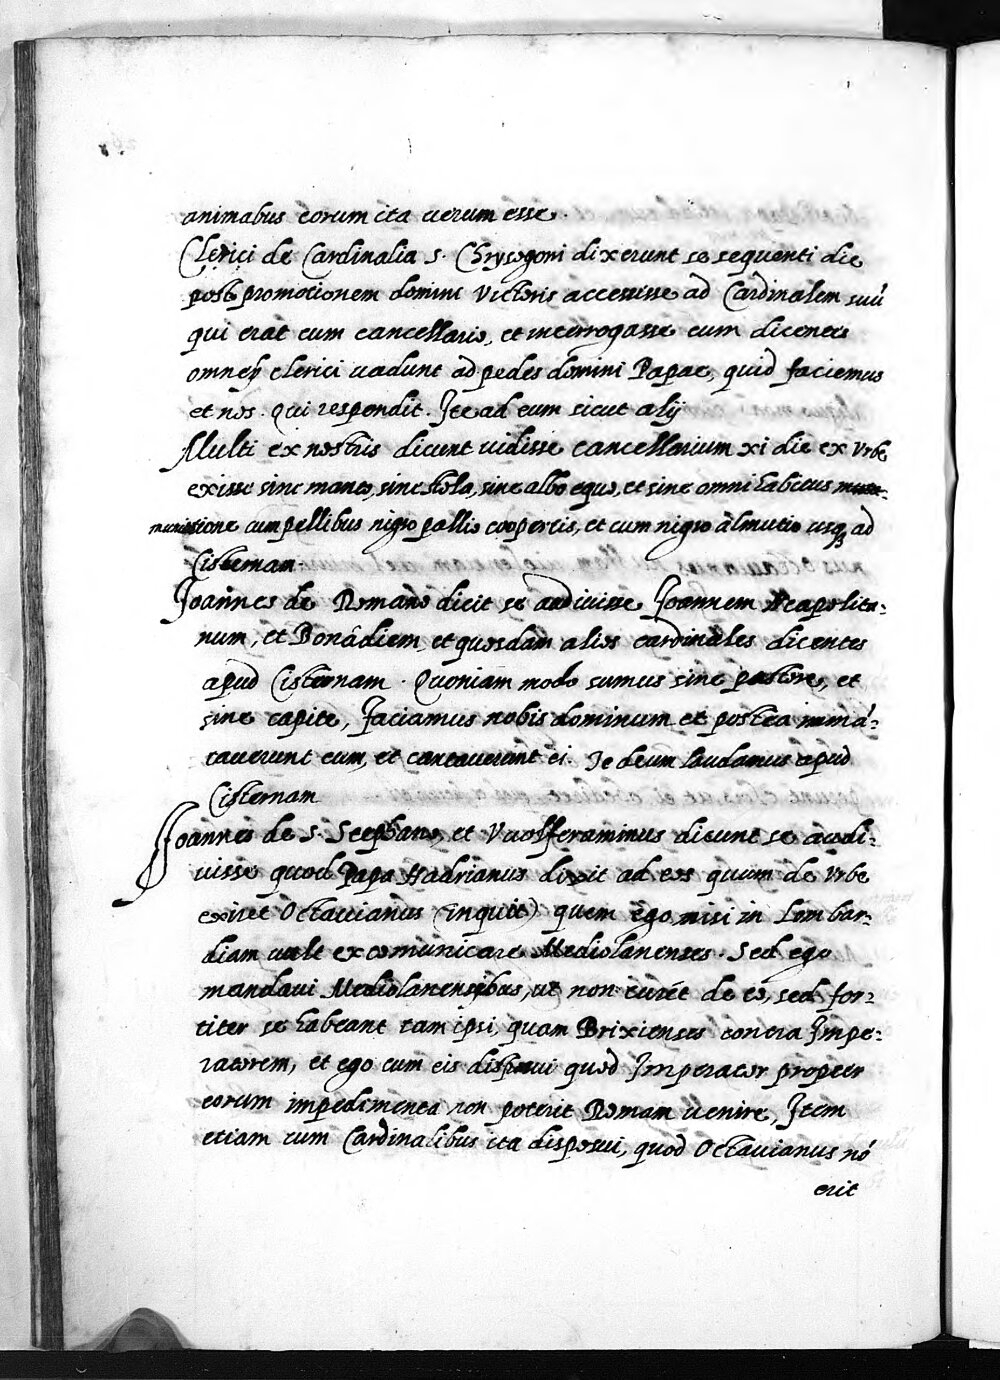 animabus eorum ita uerum esse.
Clerici de Cardinalia s. Chrysogoni dixerunt se sequenti die
post promotionem domini Victoris accessisse ad Cardinalem suũ
qui erat cum cancellario, et interrogasse eum dicentes
omnes clerici uadunt ad pedes domini Papae, quid faciemus
et nos. Qui respondit. Ite ad eum sicut alij
Multi ex nostris dicunt uidisse cancellarium xi die ex Vrbe
exisse sine manto, sine stola, sine albo equo, et sine omni habitus
mutatione cum pellibus nigro pallio coopertis, et cum nigro almutio usq; ad
Cisternam
Joannes de Romano dicit se audiuisse Joannem Neapolita-
num, et Bonãdiem et quosdam alios cardinales dicentes
apud Cisternam. Quoniam modo sumus sine pastore, et
sine capite, faciamus nobis dominum et postea immã-
tauerunt eum, et cantauerunt ei. Te deum laudamus apud
Cisternam
Joannes de S. Stephano, et Vuolferaminus dicunt se audi-
uisse quod Papa Hadrianus dixit ad eos quum de Vrbe
exiret Octauianus (inquit) quem ego misi in Lombar-
diam uult excomunicare Mediolanenses. Sed ego
mandaui Mediolanensibus, ut non curẽt de eo, sed for-
titer se habeant tam ipsi, quam Brixienses contra Impe-
ratorem, et ego cum eis disposui quod Imperator propter
eorum impedimenta non poterit Romam uenire, Item
etiam cum Cardinalibus ita disposui, quod Octauianus nõ
erit